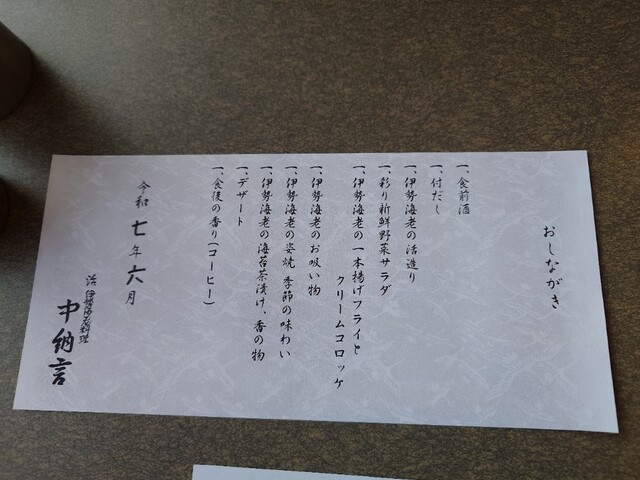 おしながき
一、食前酒
一、付だし
一、伊勢海老の活造り
一、彩り新鮮野菜サラダ
一、伊勢海老の一本揚げフライと
クリームコロッケ
一、伊勢海老のお吸い物
一、伊勢海老の姿焼 季節の味わい
一、伊勢海老の海苔茶漬け、香の物
一、デザート
一、食後の香り(コーヒー)
令和 七年 六月
活 伊勢海老料理
中納言